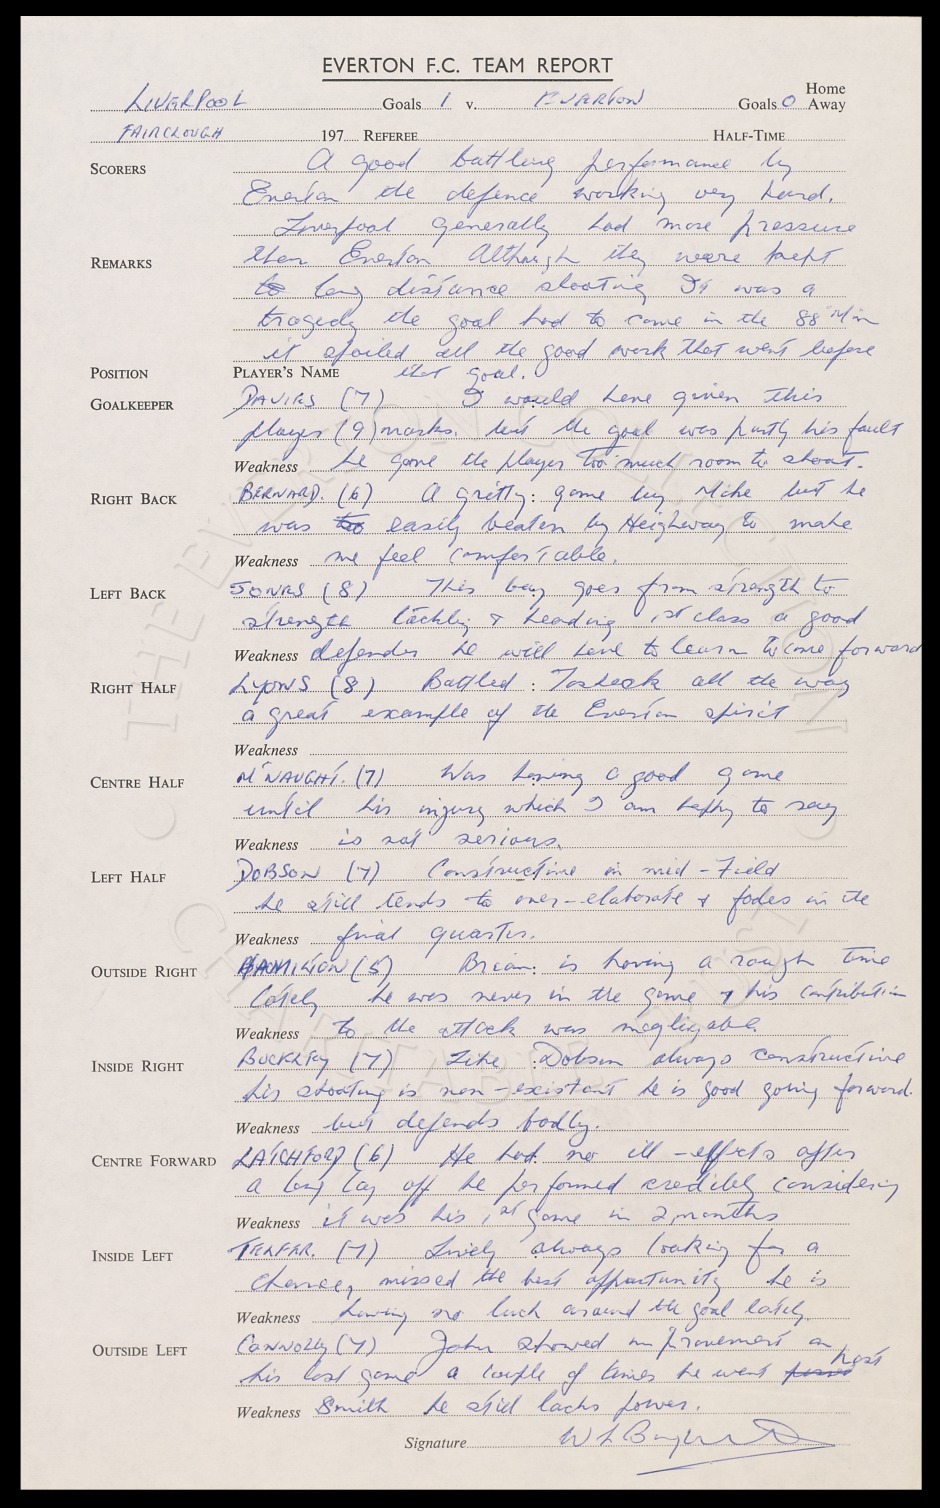 EVERTON F.C. TEAM REPORT
LIVERPOOL Goals 1 v. EVERTON Goals 0 Home Away
FAIRCLOUGH 197 REFEREE HALF-TIME
SCORERS A good battling performance by
Everton the defence working very hard.
Liverpool generally had more pressure
REMARKS than Everton Although they were kept
to long distance shooting It was a
tragedy the goal had to come in the 88 Min
it spoiled all the good work that went before
POSITION PLAYER'S NAME that goal.
GOALKEEPER DAVIES (7) I would have given this
player (9) marks. but the goal was partly his fault
Weakness he gave the player too much room to shoot.
RIGHT BACK BERNARD. (6) A gritty: game by Mike but he
was too easily beaten by Heighway to make
Weakness me feel comfortable.
LEFT BACK JONES (8) This boy goes from strength to
strength tackling & heading 1st class a good
Weakness defender he will have to learn to come forward
RIGHT HALF LYONS (8) Battled: Toshack all the way
a great example of the Everton spirit
Weakness
CENTRE HALF McNAUGHT. (7) Was having a good game
until his injury which I am happy to say
Weakness is not serious.
LEFT HALF DOBSON (7) Constructive in mid-Field
he still tends to over-elaborate & fades in the
Weakness final quarter.
OUTSIDE RIGHT HAMILTON (5) Brian: is having a rough time
lately he was never in the game & his contribution
Weakness to the attack was negligable.
INSIDE RIGHT BUCKLEY (7) Like: Dobson always constructive
his shooting is non-existant he is good going forward.
Weakness but defends badly.
CENTRE FORWARD LATCHFORD (6) He had no ill-effects after
a long lay off he performed credibly considering
Weakness it was his 1st game in 2 months
INSIDE LEFT TELFER. (7) Lively always looking for a
chance, missed the best opportunity he is
Weakness having no luck around the goal lately.
OUTSIDE LEFT CONNOLLY (7) John showed improvement on
his last game a couple of times he went past
Weakness Smith he still lacks power.
Signature
THE EVERTON COLLECTION
CHARITABLE TRUST